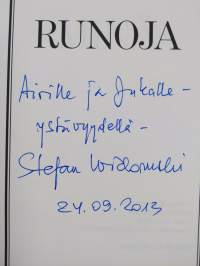 RUNOJA
Airille ja Jukalle -
ystävyydellä -
Stefan Widomski
24.09.2013